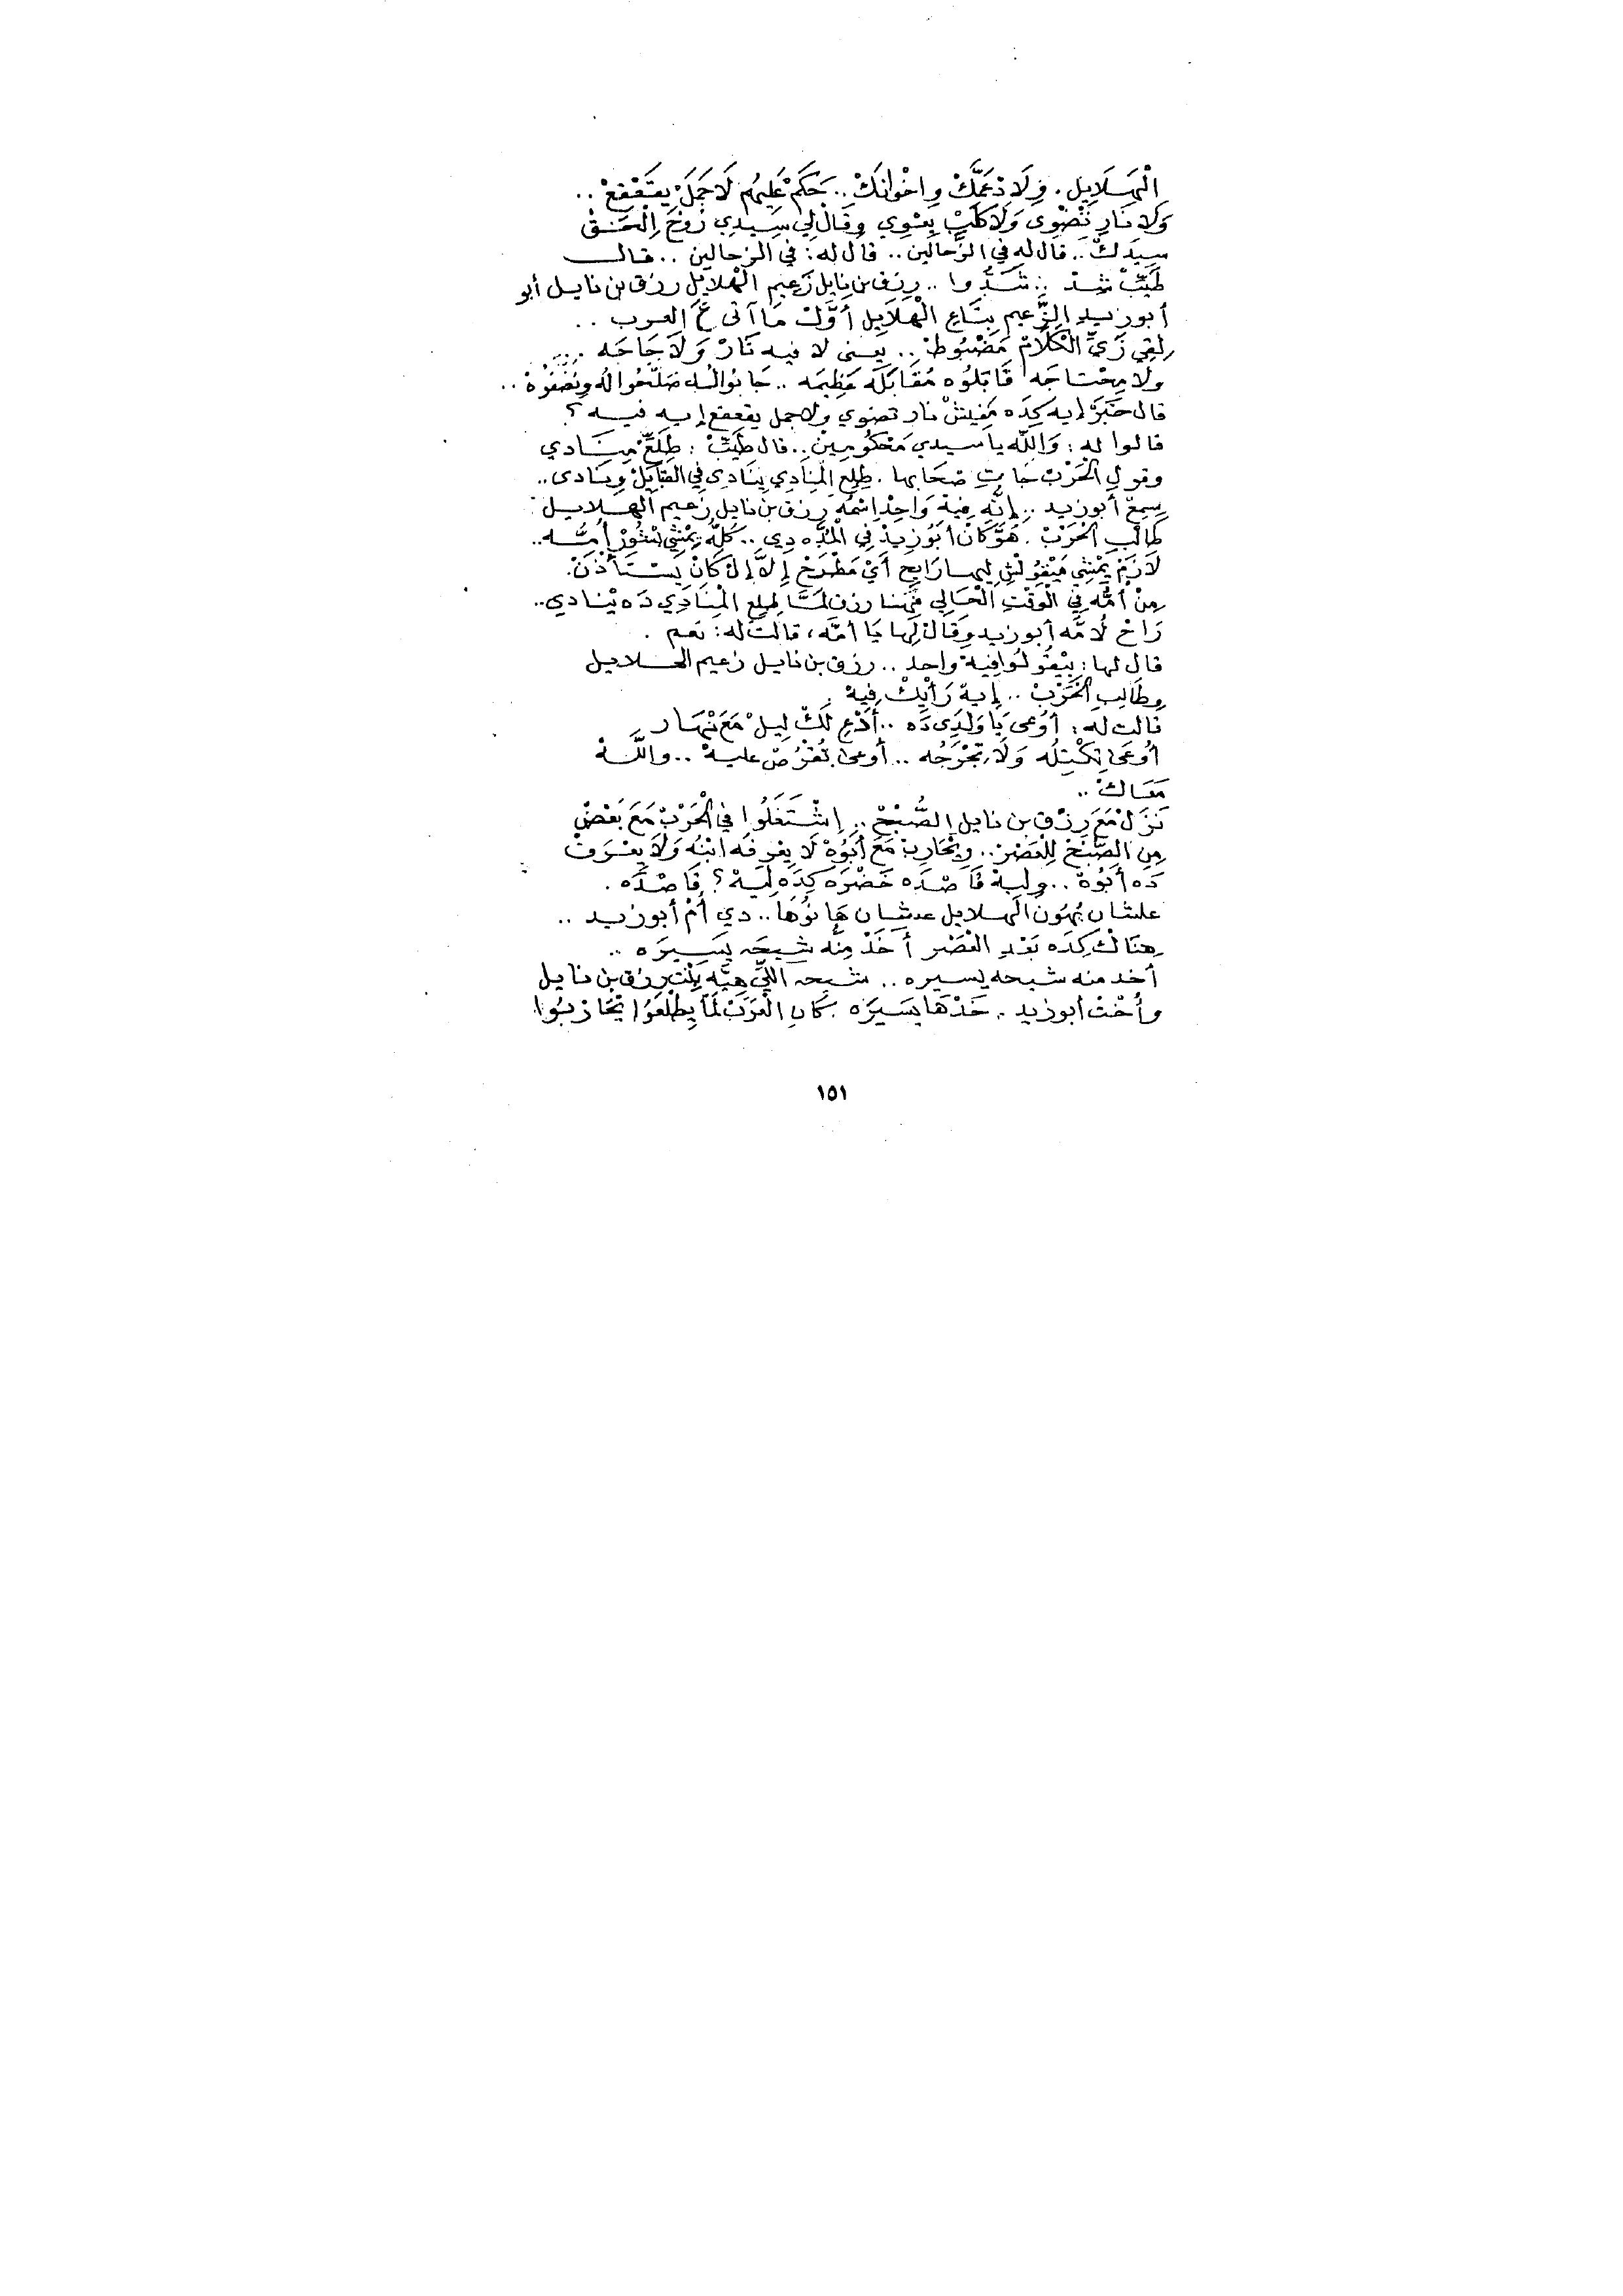 الْهَلَايِل. وِلَادْ عَمَّكْ وِاخْوَانَكْ.. حَكَمْ عَلِيهُم لَا جَمَلْ يِقَعْقِعْ..
وَلَا نَارِ تِضْوِى وَلَا كَلْبْ يِعْوِي وِقَالْ لِي سِيدِي رُوحْ اِلْحَقْ
سِيدَكْ.. قال له في الرَّحَّالين.. قال له: في الرحالين.. قال
طَيِّبْ شِدْ.. شَدُّوا.. رزق بن نايل زَعِيم الْهَلايل رزق بن نايل أبو
أبو زيد الزَّعيم بِتَاعِ الْهَلَايِل أَوَّلْ مَا أتى عَ العرب..
لِقِي زَيِّ الْكَلَامْ مَضْبُوطْ.. يَعنى لا فيه نَارْ وَلَا حَاجَه..
ولا مِحْتَاجَه قَابْلُوه مُقَابَلَه عَظِيمَه.. جَابُوا لُه صَلَّحُوا لُه
قال خَبَرْ إيه كِدَه مَفِيشْ نار تضوي ولا جمل يقعقع إيه فيه؟
قالوا له: وَاللّه يا سيدي مَحْكُومِينْ.. قال طَيِّبْ: طَلَّعْ مِنَادي
وقول الْحَرْبْ جَاتِ صْحَابها. طِلِعِ الْمِنَادِي يِنَادِى فِي الْقَبَايِلْ وِينَادى..
سِمِعْ أبو زيد.. إِنُّه فِيهْ وَاحِدْ اِسْمُه رزق بن نايل زعيم الهلايل
طَالْبِ الْحَرْبْ. هُوَّ كَانْ أَبُوزِيدْ فِي الْمُدَّه دِي.. كُلُّه يِمْشِي بْشُورْ أُمُّه..
لَازِمْ يِمْشِي مَيْقُولْشِ لِيهَا رَايِحِ أَيْ مَطْرَحْ إِلَّا إِنْ كَانْ يِسْتَأْذَنْ.
مِنْ أُمُّه فِي الْوَقْتِ الْحَالِي فَهنا رزق لَمَّا طِلِعِ الْمِنَادِي دَه يْنَادي..
رَاحْ لُامُّه أبو زيد وِقَالْ لِهَا يَا أمَّه، قالت له: نعم.
قال لها: بِيْقُولُوا فِيهْ واحد.. رزق بن نايل زعيم الهلايل
وِطَالِبِ الْحَرْبْ.. إِيهْ رَأْيِكْ فِيهْ.
قالت له: أُوْعى يَا وَلَدِى دَه.. أَدْعِ لَكْ لِيلْ مَعَ نْهَار
أُوْعَى تِكْتِلُه وَلَا تِجْرَحُه.. أوعى تُقْرُصْ عليهْ.. واللّهْ
مَعَاكْ..
نَزَلْ مَعَ رِزْق بن نايل الصُّبْحْ.. اِشْتَغَلُوا فِي الْحَرْبْ مَعَ بَعْضْ
مِن الصُّبْحْ لِلْعَصْرْ.. وِيْحَارِبْ مَعَ أَبُوهْ لَا يِعْرِفَه ابْنُه وَلَا يِعْرَفْ
دَه أَبُوهْ.. ولِيهْ قَاصْدَه خَضْرَه كِدَه لِيهْ؟ قَاصْدَه.
علشان يْهُون الهلايل عشان هَانُوهَا.. دي أُمْ أبو زيد..
هِنَاكْ كِدَه بَعْدِ الْعَصْر أَخَدْ مِنُّه شيحَه يَسِيرَه..
أخد منه شيحه يسيره.. شيحه اللِّي هِيَّه بِنْت رزق بن نايل
وأُخْتْ أبو زيد. خَدْهَا يَسِيرَه. كان الْعَرَبْ لَمَّا يِطْلَعُوا يْحَارْبُوا
١٥١